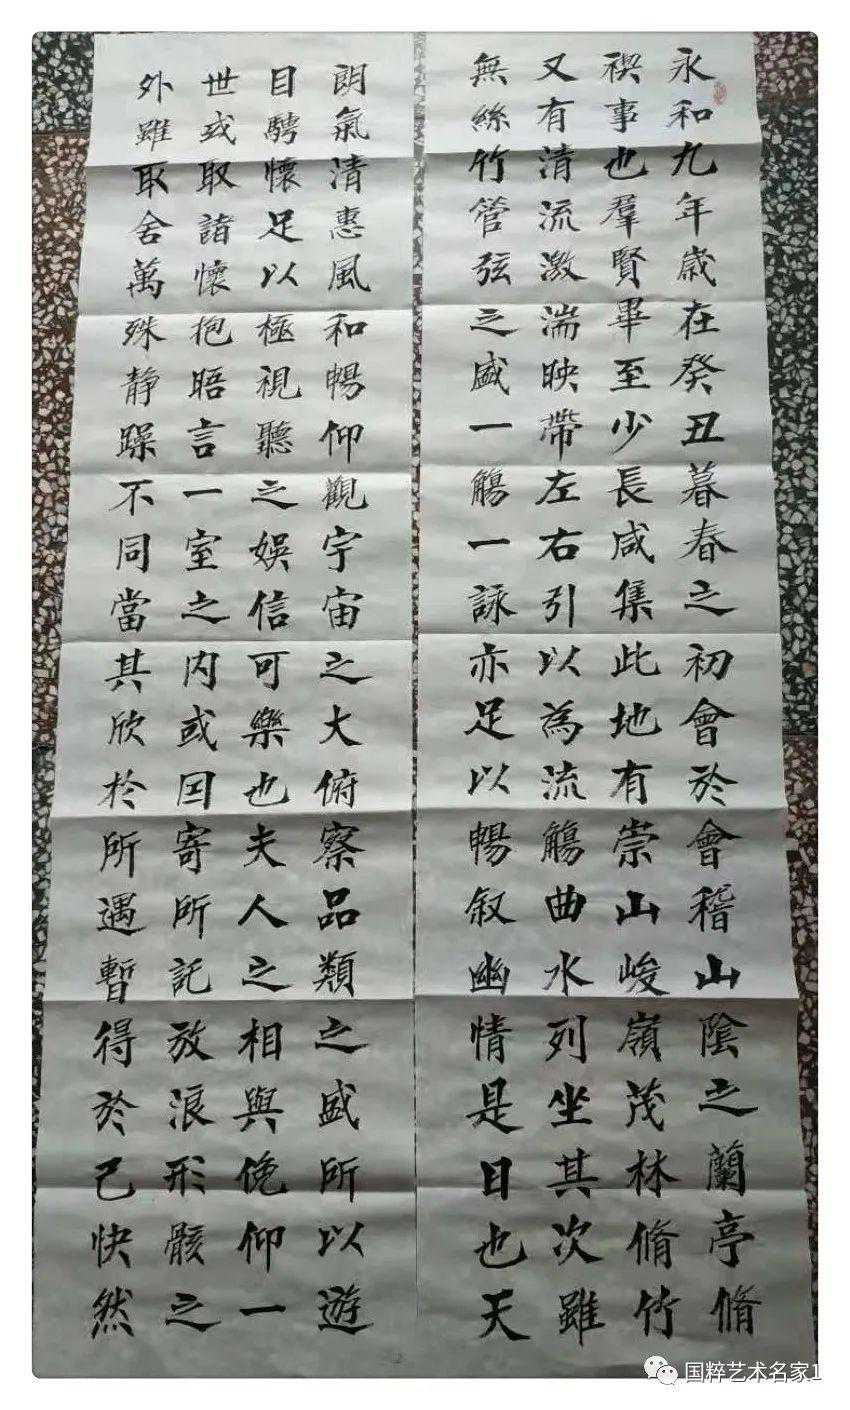 永和九年歲在癸丑暮春之初會於會稽山陰之蘭亭脩
禊事也羣賢畢至少長咸集此地有崇山峻嶺茂林脩竹
又有清流激湍映帶左右引以為流觴曲水列坐其次雖
無絲竹管弦之盛一觴一詠亦足以暢叙幽情是日也天
朗氣清惠風和暢仰觀宇宙之大俯察品類之盛所以遊
目騁懷足以極視聽之娛信可樂也夫人之相與俛仰一
世或取諸懷抱晤言一室之内或因寄所託放浪形骸之
外雖取舍萬殊静躁不同當其欣於所遇暫得於己快然
国粹艺术名家1